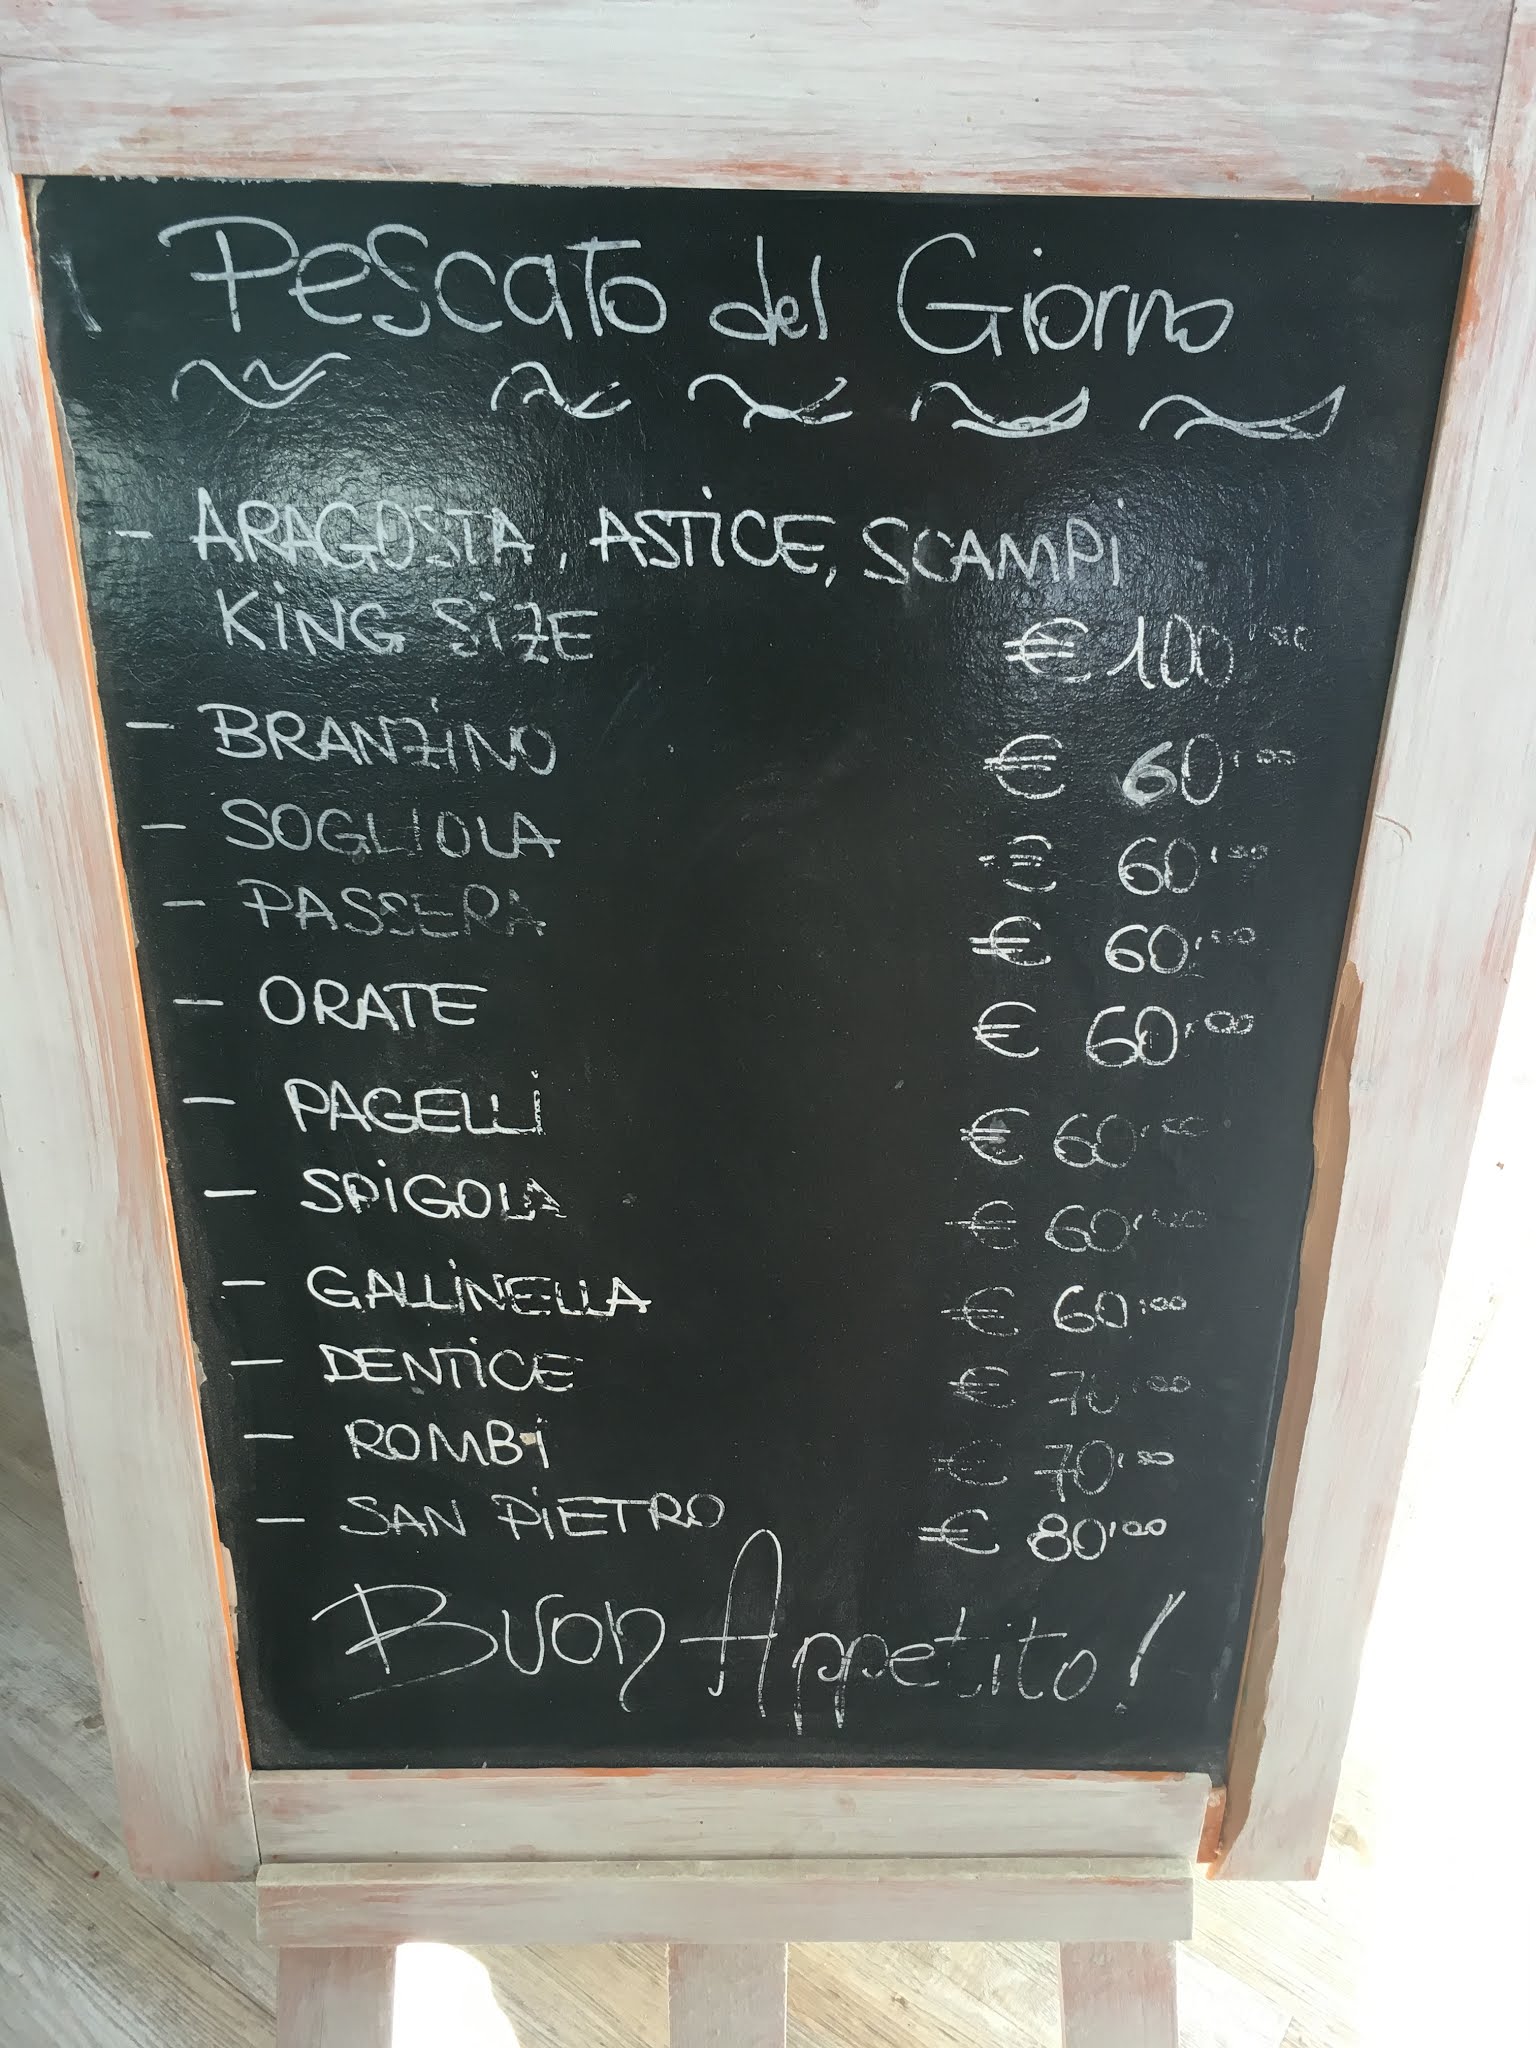 Pescato del Giorno
- ARAGOSTA, ASTICE, SCAMPI
KING SIZE € 100,00
- BRANZINO € 60,00
- SOGLIOLA € 60,00
- PASSERA € 60,00
- ORATE € 60,00
- PAGELLI € 60,00
- SPIGOLA € 60,00
- GALLINELLA € 60,00
- DENTICE € 70,00
- ROMBI € 70,00
- SAN PIETRO € 80,00
Buon Appetito!